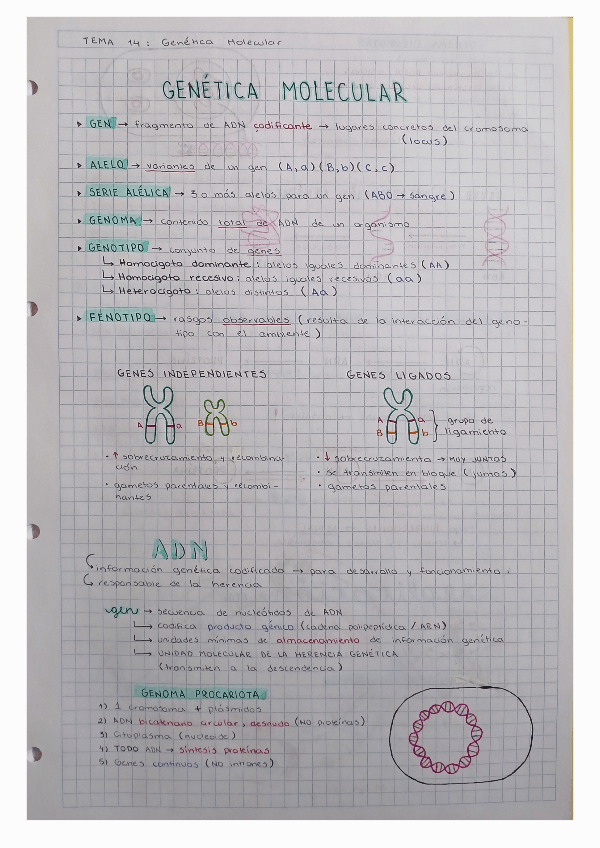 TEMA 14: Genética Molecular
GENÉTICA MOLECULAR
▸ GEN → fragmento de ADN codificante → lugares concretos del cromosoma
(locus)
▸ ALELO → variantes de un gen (A,a)(B,b)(C,c)
▸ SERIE ALÉLICA → 3 o más alelos para un gen (ABO → sangre)
▸ GENOMA → contenido total de ADN de un organismo
▸ GENOTIPO → conjunto de genes
↳ Homocigoto dominante: alelos iguales dominantes (AA)
↳ Homocigoto recesivo: alelos iguales recesivos (aa)
↳ Heterocigoto: alelos distintos (Aa)
▸ FENOTIPO → rasgos observables (resulta de la interacción del geno-
tipo con el ambiente)
GENES INDEPENDIENTES
A a B b
· ↑ sobrecruzamiento y recombina-
ción
· gametos parentales y recombi-
nantes
GENES LIGADOS
A a
B b
grupo de
ligamiento
· ↓ sobrecruzamiento → MUY JUNTOS
· se transmiten en bloque (juntos)
· gametos parentales
ADN
información genética codificada → para desarrollo y funcionamiento
responsable de la herencia
gen → secuencia de nucleótidos de ADN
↳ codifica producto génico (cadena polipeptídica / ARN)
↳ unidades mínimas de almacenamiento de información genética
↳ UNIDAD MOLECULAR DE LA HERENCIA GENÉTICA
(transmiten a la descendencia)
GENOMA PROCARIOTA
1) 1 cromosoma + plásmidos
2) ADN bicatenario circular, desnudo (NO proteínas)
3) Citoplasma (nucleoide)
4) TODO ADN → síntesis proteínas
5) Genes continuos (NO intrones)